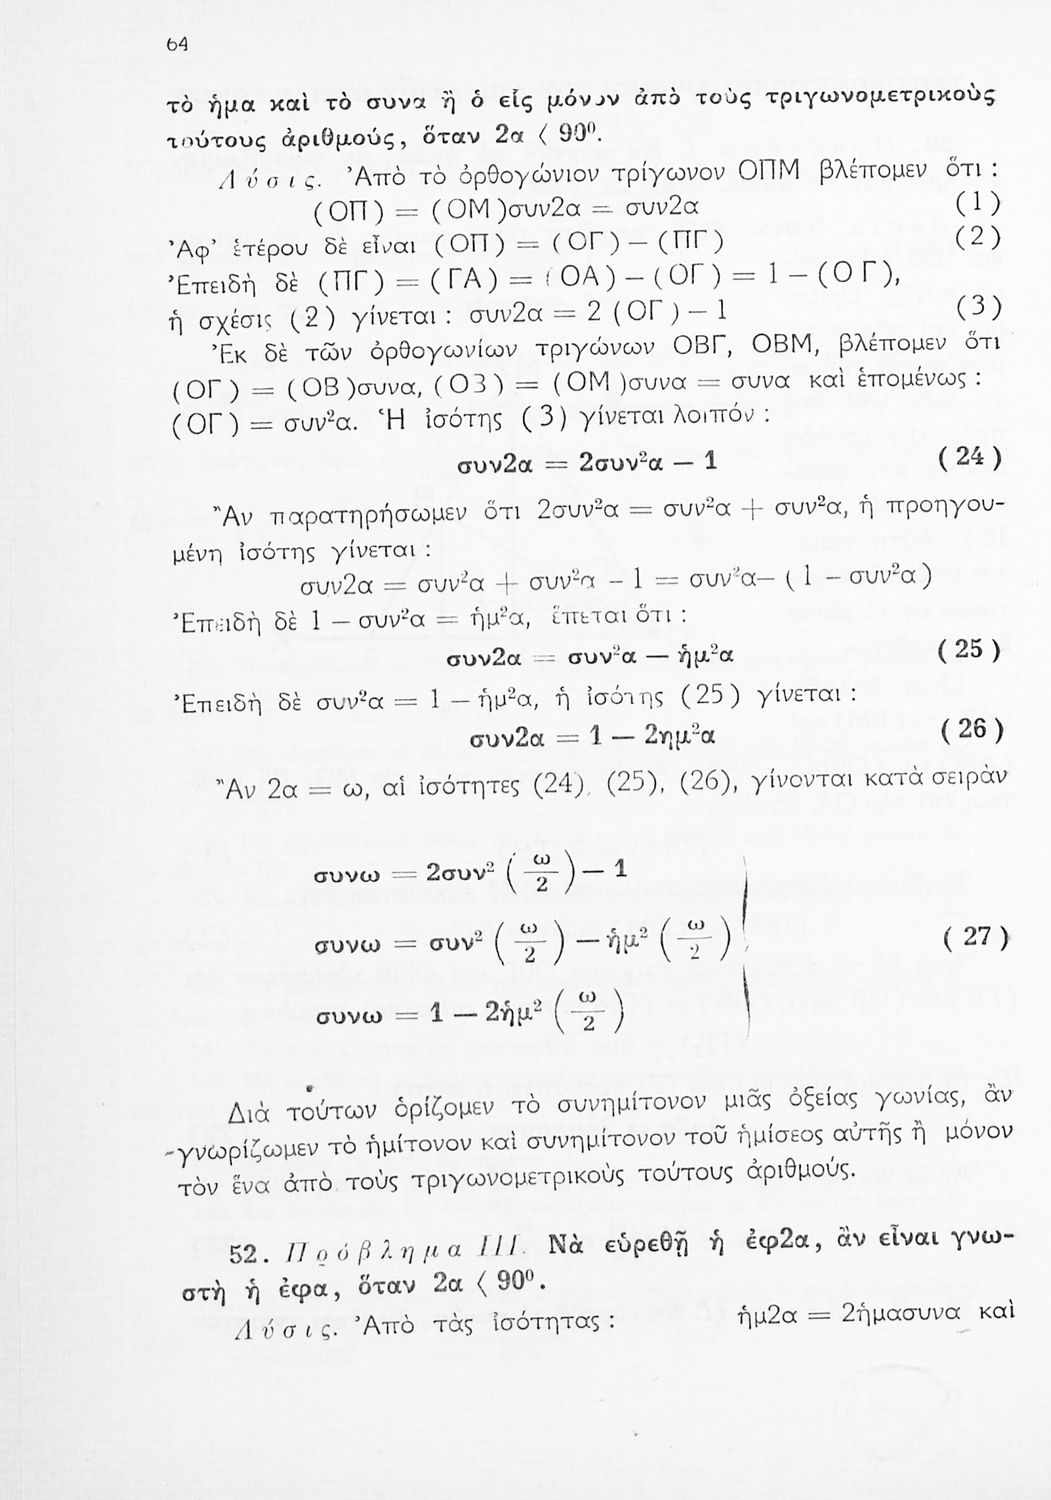 64
τὸ ἡμα καὶ τὸ συνα ἢ ὁ εἷς μόνον ἀπὸ τοὺς τριγωνομετρικοὺς
τούτους ἀριθμούς, ὅταν 2α ⟨ 90⁰.
Λύσις. Ἀπὸ τὸ ὀρθογώνιον τρίγωνον ΟΠΜ βλέπομεν ὅτι :
(ΟΠ) = (ΟΜ)συν2α = συν2α (1)
Ἀφ' ἑτέρου δὲ εἶναι (ΟΠ) = (ΟΓ) – (ΠΓ) (2)
Ἐπειδὴ δὲ (ΠΓ) = (ΓΑ) = (ΟΑ) – (ΟΓ) = 1 – (ΟΓ),
ἡ σχέσις (2) γίνεται : συν2α = 2 (ΟΓ) – 1 (3)
Ἐκ δὲ τῶν ὀρθογωνίων τριγώνων ΟΒΓ, ΟΒΜ, βλέπομεν ὅτι
(ΟΓ) = (ΟΒ)συνα, (Ο3) = (ΟΜ)συνα = συνα καὶ ἑπομένως :
(ΟΓ) = συν²α. Ἡ ἰσότης (3) γίνεται λοιπόν :
συν2α = 2συν²α – 1 (24)
Ἂν παρατηρήσωμεν ὅτι 2συν²α = συν²α + συν²α, ἡ προηγου-
μένη ἰσότης γίνεται :
συν2α = συν²α + συν²α – 1 = συν²α– (1 – συν²α)
Ἐπειδὴ δὲ 1 – συν²α = ἡμ²α, ἕπεται ὅτι :
συν2α = συν²α – ἡμ²α (25)
Ἐπειδὴ δὲ συν²α = 1 – ἡμ²α, ἡ ἰσότης (25) γίνεται :
συν2α = 1 – 2ημ²α (26)
Ἂν 2α = ω, αἱ ἰσότητες (24), (25), (26), γίνονται κατὰ σειρὰν
συνω = 2συν² (ω/2) – 1
συνω = συν² (ω/2) – ἡμ² (ω/2) (27)
συνω = 1 – 2ἡμ² (ω/2)
Διὰ τούτων ὁρίζομεν τὸ συνημίτονον μιᾶς ὀξείας γωνίας, ἂν
γνωρίζωμεν τὸ ἡμίτονον καὶ συνημίτονον τοῦ ἡμίσεος αὐτῆς ἢ μόνον
τὸν ἕνα ἀπὸ τοὺς τριγωνομετρικοὺς τούτους ἀριθμούς.
52. Πρόβλημα III. Νὰ εὑρεθῇ ἡ ἐφ2α, ἂν εἶναι γνω-
στὴ ἡ ἐφα, ὅταν 2α ⟨ 90⁰.
Λύσις. Ἀπὸ τὰς ἰσότητας : ἡμ2α = 2ἡμασυνα καὶ